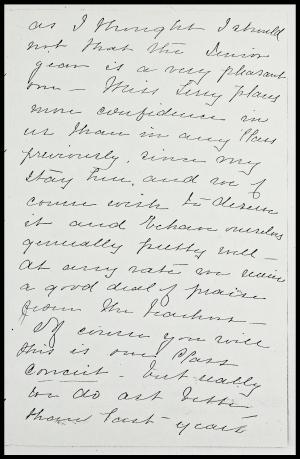 as I thought I should
not that the Senior
year is a very pleasant
one — Miss Terry places
more confidence in
us than in any Class
previously, since my
stay here, and we of
course wish to deserve
it and behave ourselves
generally pretty well —
at any rate we receive
a good deal of praise
from the teachers —
Of course you will
this is our Class
conceit. but really
we do act better
than last year's